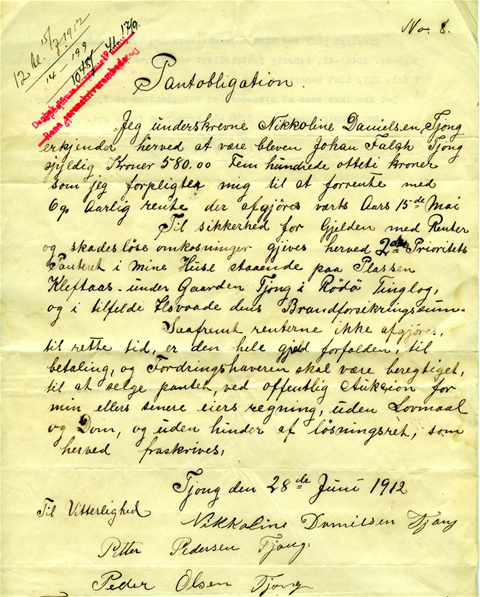 No. 8.
12 bl. 15/7 1912
14 - 199
1048/
41. 17/9.
Pantobligation.
Jeg underskrevne Nikkoline Danielsen, Tjong
erkjender herved at være bleven Johan Falch Tjong
skyldig Kroner 580.00 Fem hundrede otteti kroner
som jeg forpligter mig til at forrente med
6% Aarlig rente, der afgjöres varts Aars 15de Mai
Til sikkerhed for Gjelden med Renter
og skadeslöse omkosninger gives herved 2den Prioritets
Panteret i mine Huse staaende paa Plassen
Kleftaas under Gaarden Tjong i Rödö Tinglag,
og i tilfelde Ilsvaade dens Brandforsikringssum.
Saafremt renterne ikke afgjöres,
til rette tid, er den hele gjeld forfalden, til
betaling, og Fordringshaveren skal være beregtiget,
til at selge pantet, ved offentlig Auksion for
min ellers senere eiers regning, uden Lovmaal
og Dom, og uden hinder af lösningsret, som
herved fraskrives,
Tjong den 28de Juni 1912
Til Vitterlighed
Nikkoline Danilsen Tjong
Petter Pedersen Tjong.
Peder Olsen Tjong